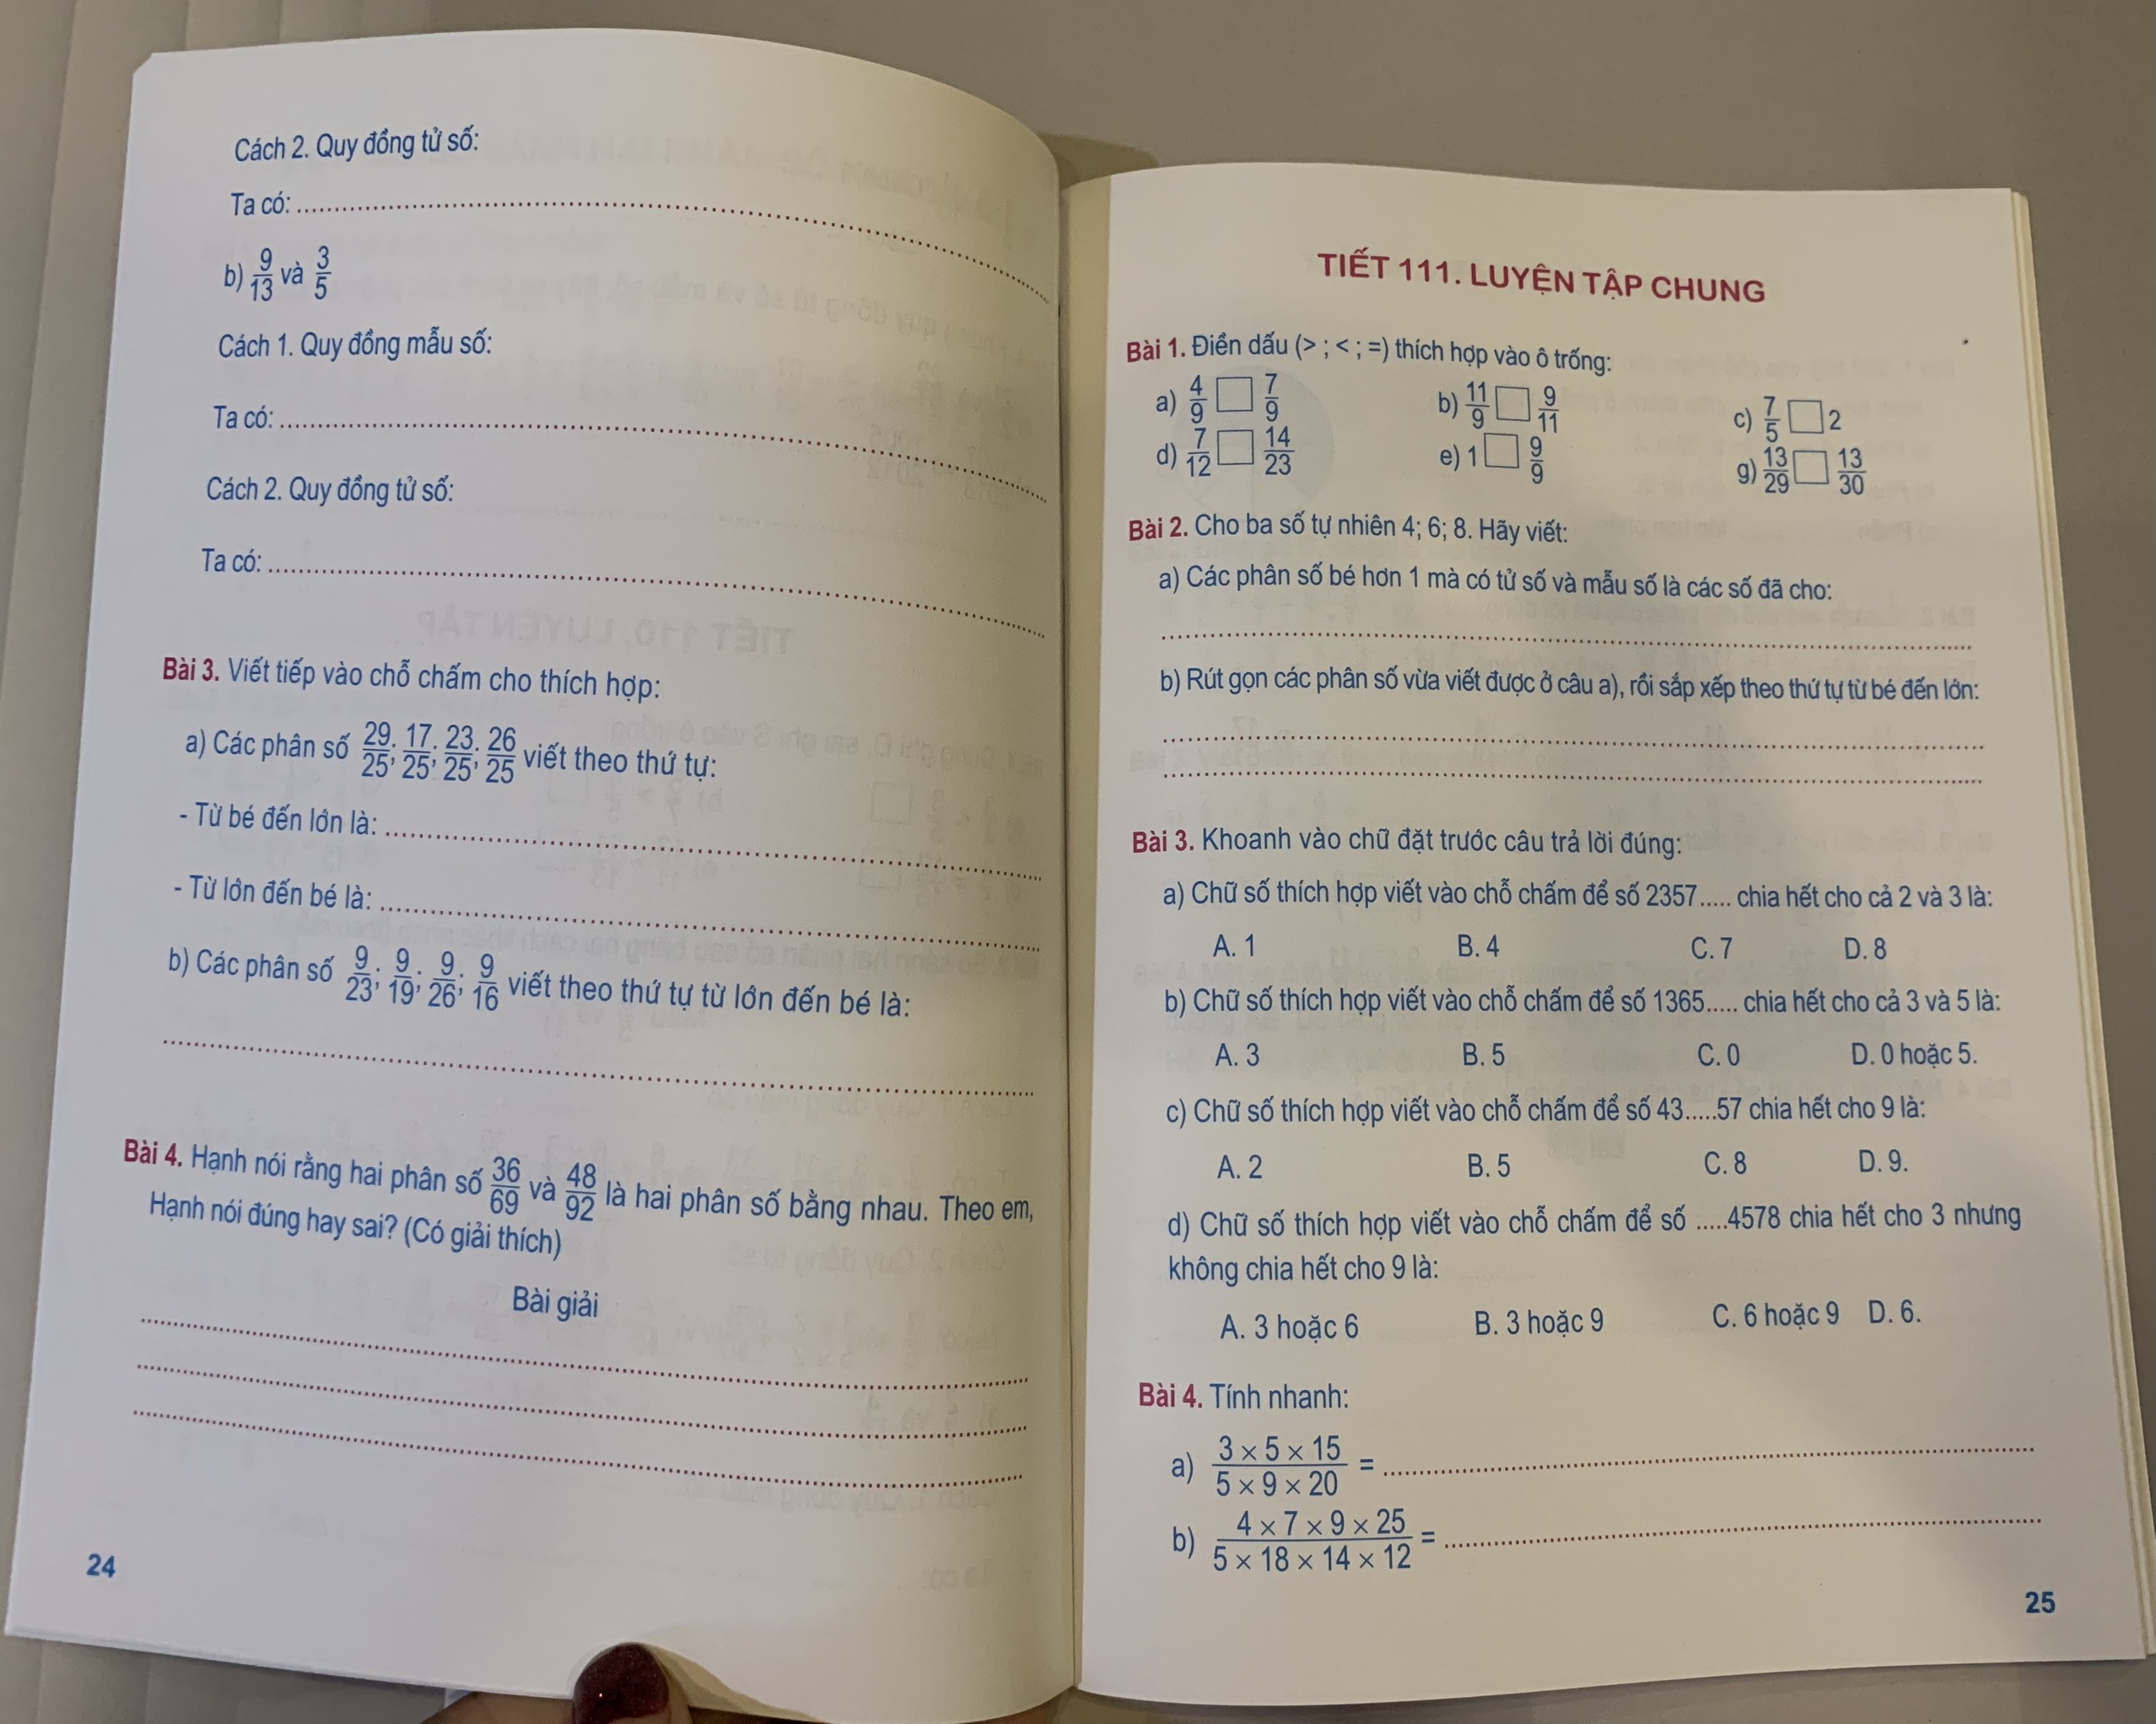 Cách 2. Quy đồng tử số:
Ta có: ........
b) 9/13 và 3/5
Cách 1. Quy đồng mẫu số:
Ta có: ........
Cách 2. Quy đồng tử số:
Ta có: ........
Bài 3. Viết tiếp vào chỗ chấm cho thích hợp:
a) Các phân số 29/25; 17/25; 23/25; 26/25 viết theo thứ tự:
- Từ bé đến lớn là: ........
- Từ lớn đến bé là: ........
b) Các phân số 9/23; 9/19; 9/26; 9/16 viết theo thứ tự từ lớn đến bé là:
Bài 4. Hạnh nói rằng hai phân số 36/69 và 48/92 là hai phân số bằng nhau. Theo em,
Hạnh nói đúng hay sai? (Có giải thích)
Bài giải
24
TIẾT 111. LUYỆN TẬP CHUNG
Bài 1. Điền dấu (> ; < ; =) thích hợp vào ô trống:
a) 4/9 □ 7/9 b) 11/9 □ 9/11 c) 7/5 □ 2
d) 7/12 □ 14/23 e) 1 □ 9/9 g) 13/29 □ 13/30
Bài 2. Cho ba số tự nhiên 4; 6; 8. Hãy viết:
a) Các phân số bé hơn 1 mà có tử số và mẫu số là các số đã cho:
b) Rút gọn các phân số vừa viết được ở câu a), rồi sắp xếp theo thứ tự từ bé đến lớn:
Bài 3. Khoanh vào chữ đặt trước câu trả lời đúng:
a) Chữ số thích hợp viết vào chỗ chấm để số 2357..... chia hết cho cả 2 và 3 là:
A. 1 B. 4 C. 7 D. 8
b) Chữ số thích hợp viết vào chỗ chấm để số 1365..... chia hết cho cả 3 và 5 là:
A. 3 B. 5 C. 0 D. 0 hoặc 5.
c) Chữ số thích hợp viết vào chỗ chấm để số 43.....57 chia hết cho 9 là:
A. 2 B. 5 C. 8 D. 9.
d) Chữ số thích hợp viết vào chỗ chấm để số .....4578 chia hết cho 3 nhưng
không chia hết cho 9 là:
A. 3 hoặc 6 B. 3 hoặc 9 C. 6 hoặc 9 D. 6.
Bài 4. Tính nhanh:
a) (3 × 5 × 15)/(5 × 9 × 20) = ........
b) (4 × 7 × 9 × 25)/(5 × 18 × 14 × 12) = ........
25